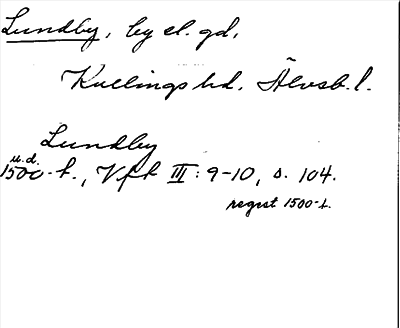 Lundby, by el. gd,
Kullings hd. Älvsb. l.
Lundby
u.d.
1500-t., Vft III: 9-10, s. 104.
regest 1500-t.